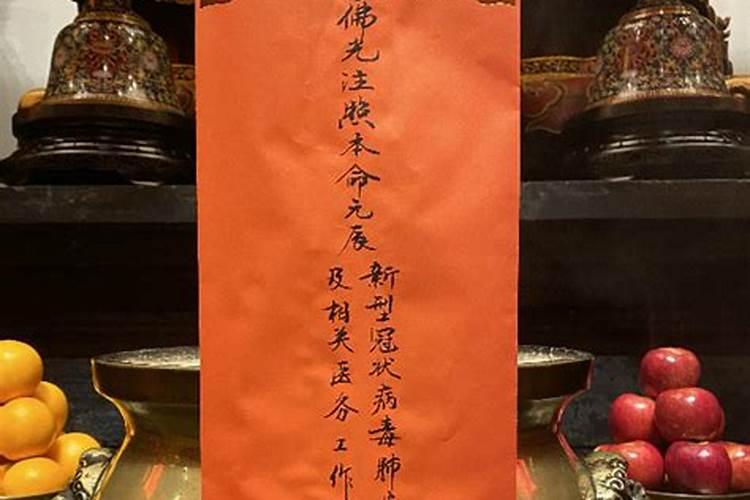 佛光注照本命元辰
新型冠状病毒肺
及相关医务工作